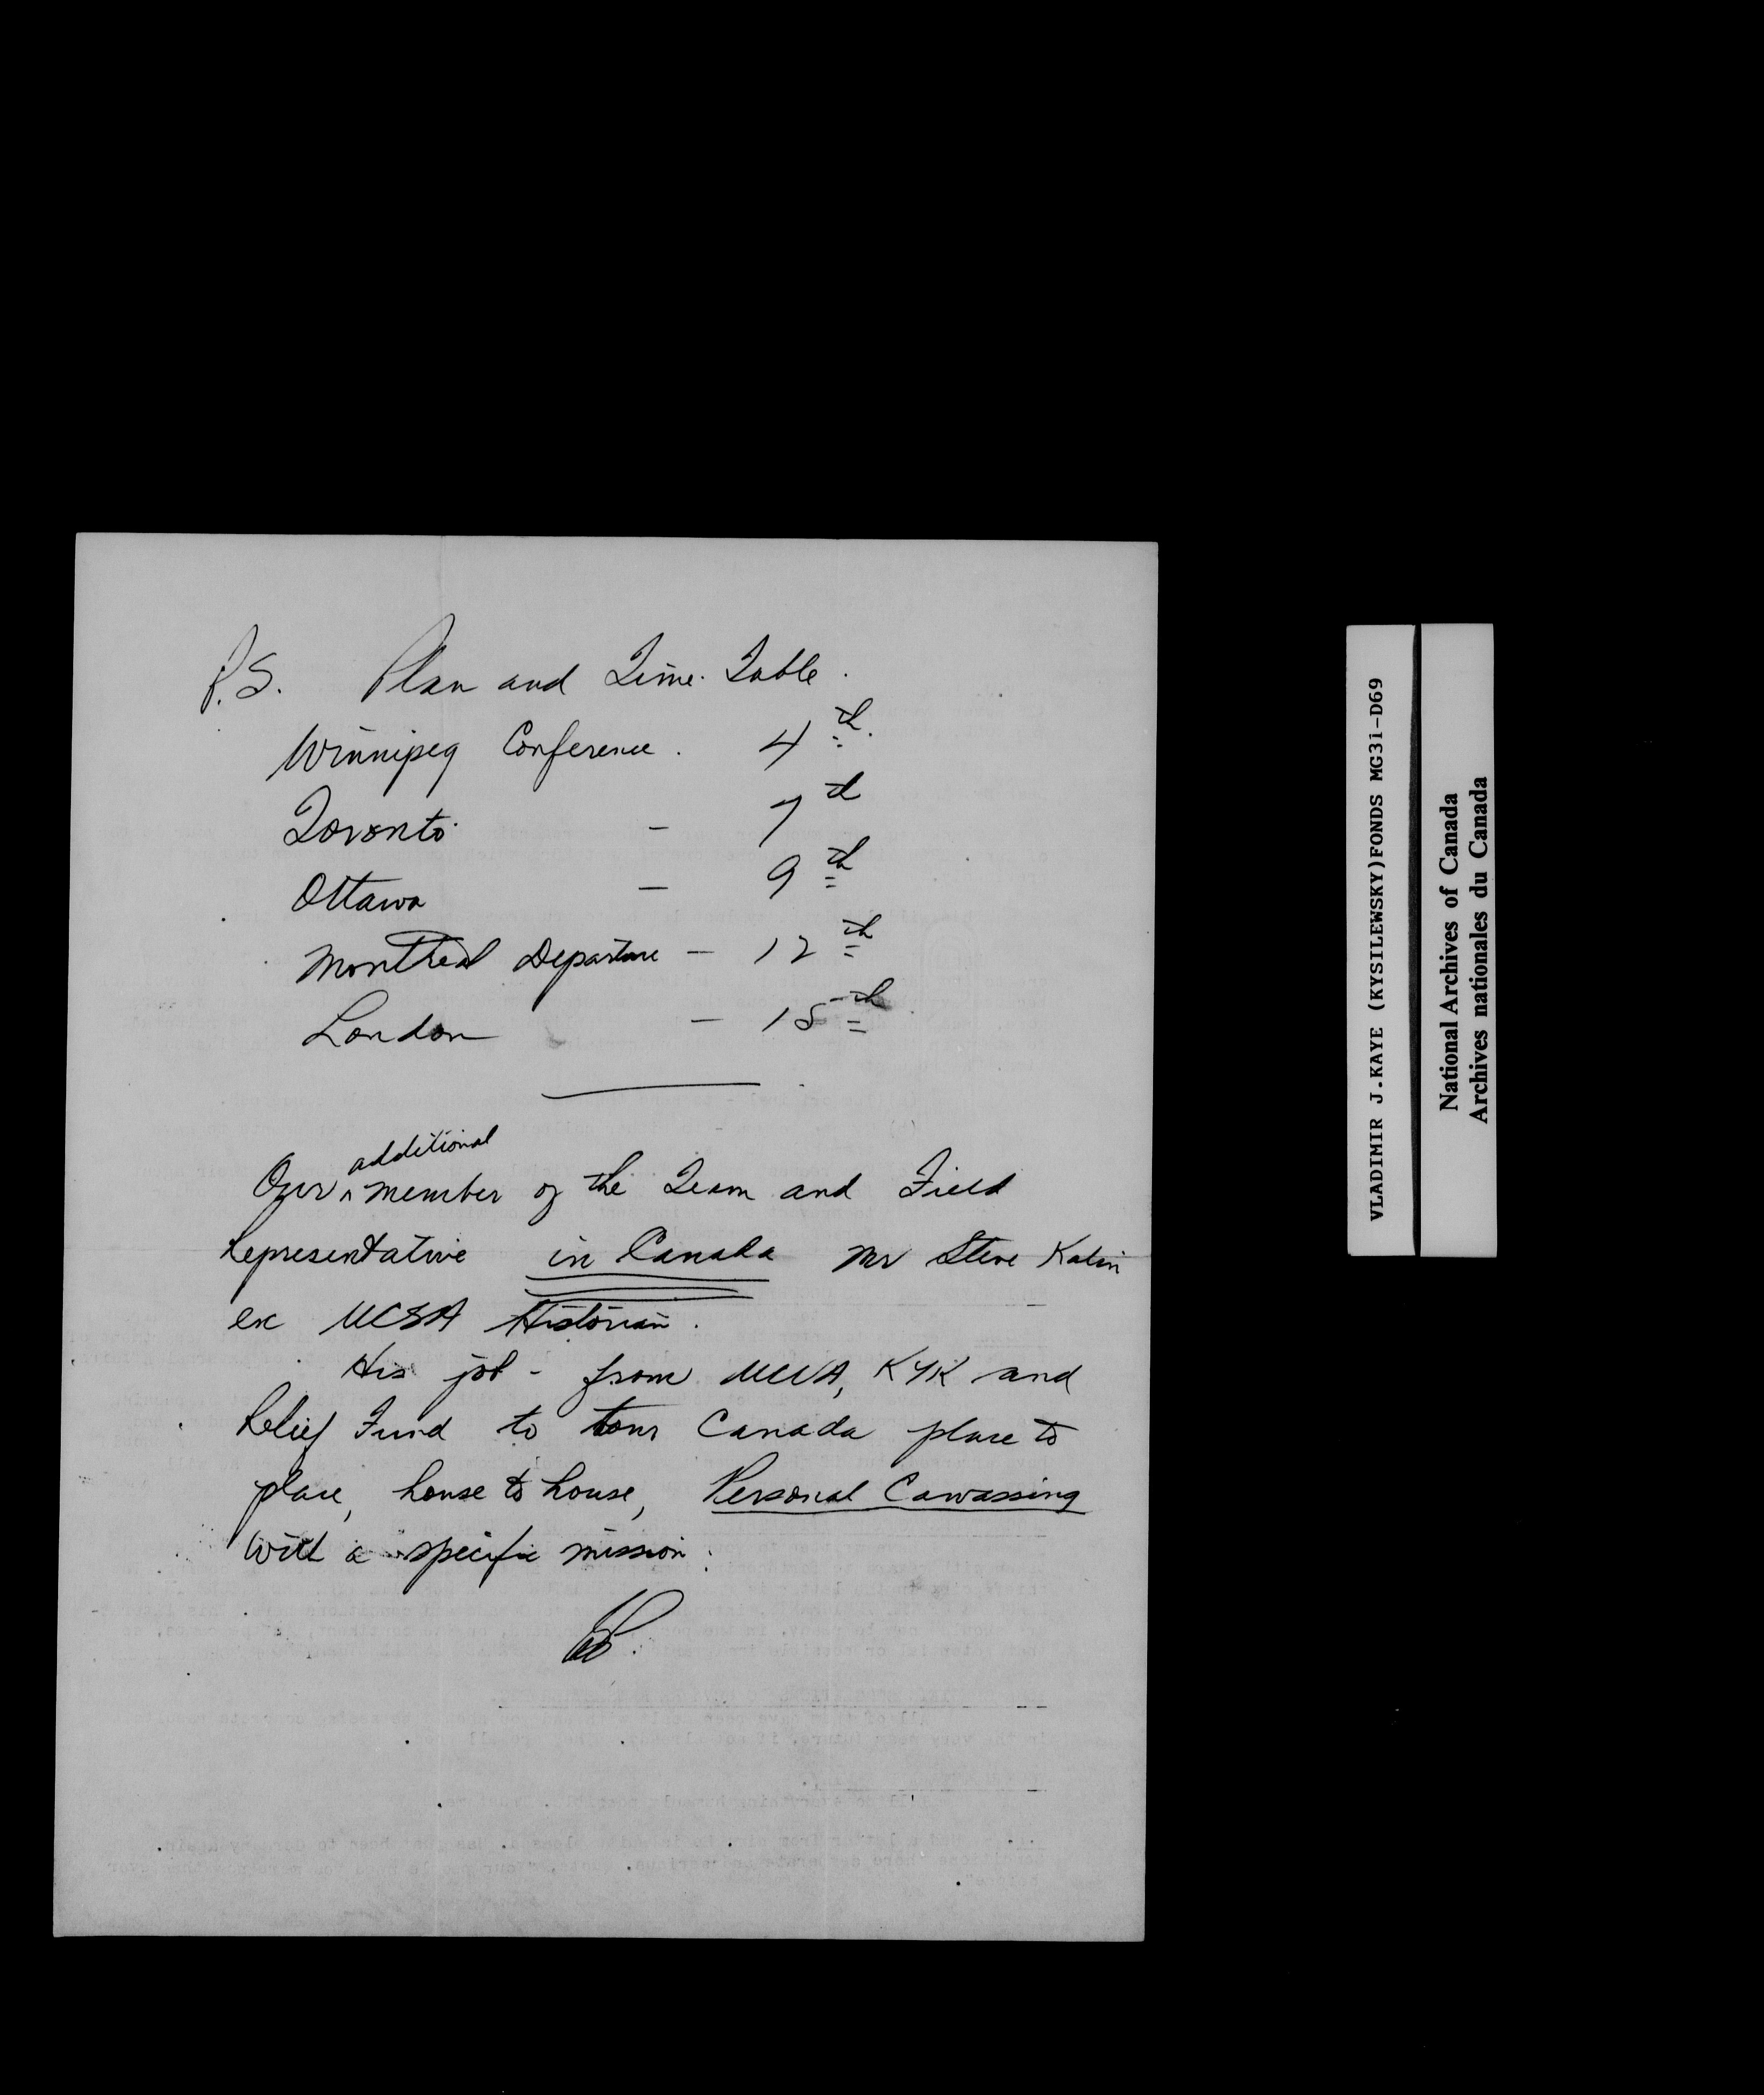 P.S. Plan and Time. Table.
Winnipeg Conference. 4th.
Toronto - 7th
Ottawa - 9th
Montreal Departure - 12th
London - 15th
additional
Our ^ member of the Team and Field
Representative in Canada Mr Steve Kalin
ex UCSA Historian.
His job - from UCVA, KYK and
Relief Fund to tour Canada place to
place, house to house, Personal Cawassing
with a specific mission.
VLADIMIR J.KAYE (KYSILEWSKY)FONDS MG31-D69
National Archives of Canada
Archives nationales du Canada